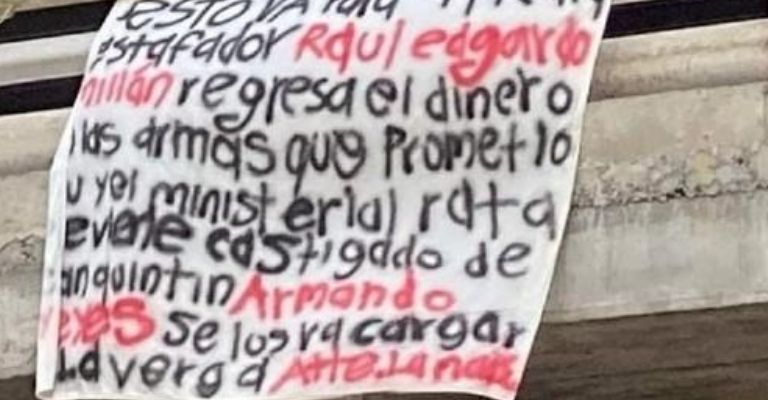 ESTO VA Para
estafador Raul edgardo
millán regresa el dinero
las armas que Prometio
u yel ministerial rata
eviene castigado de
anquintin Armando
eyes se los va cargar
La verga Atte. La